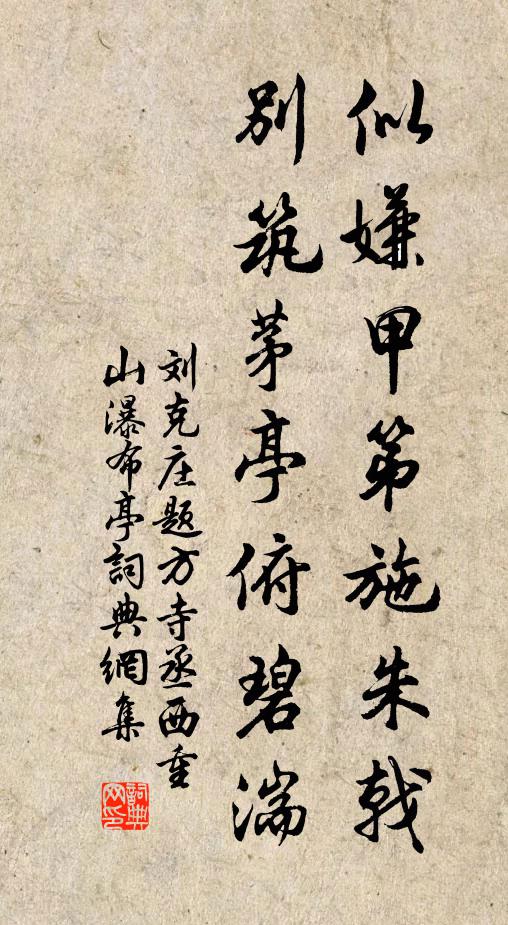 似嫌甲第施朱戟
别筑茅亭俯碧湍
刘克庄题方寺丞西重
山瀑布亭詞典網集
詞典
网印